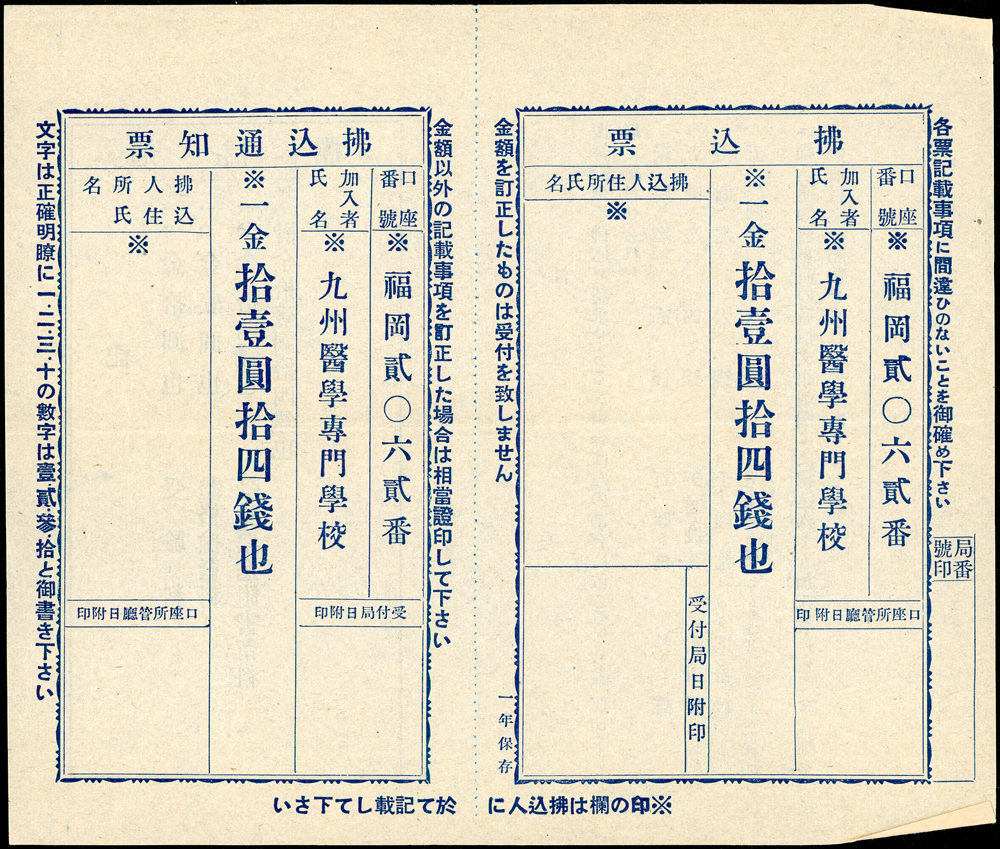 各票記載事項に間違ひのないことを御確め下さい
局番
號印
拂込票
口座
番號
※福岡貳〇六貳番
加入者
氏名
※九州醫學專門學校
口座所管廳日附印
※一金拾壹圓拾四錢也
拂込人住所氏名
※
受付局日附印
金額を訂正したものは受付を致しません
一年保存
金額以外の記載事項を訂正した場合は相當證印して下さい
拂込通知票
口座
番號
※福岡貳〇六貳番
加入者
氏名
※九州醫學專門學校
受付局日附印
※一金拾壹圓拾四錢也
拂込人住所氏名
※
口座所管廳日附印
文字は正確明瞭に一・二・三・十の數字は壹・貳・參・拾と御書き下さい
※印の欄は拂込人に於て記載して下さい